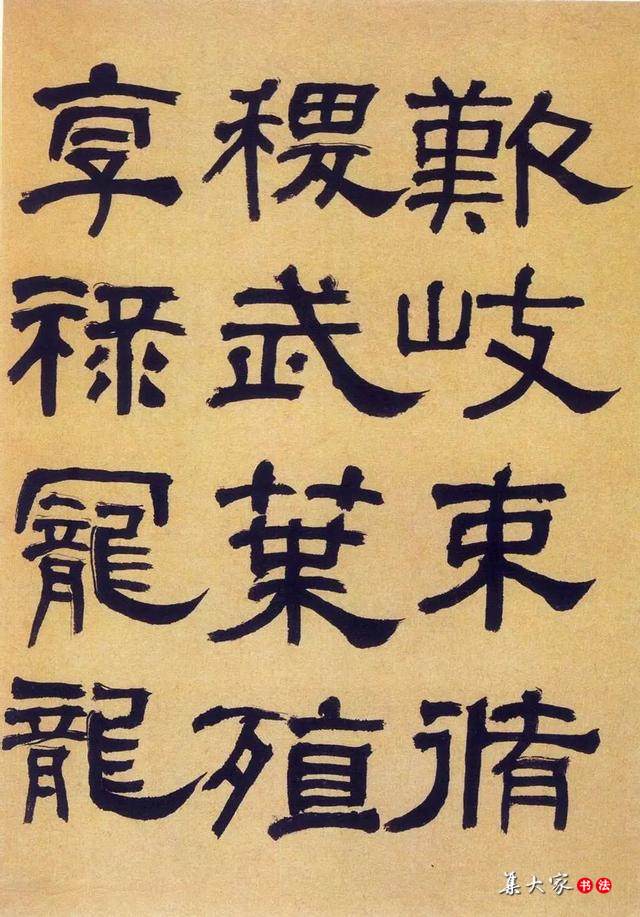 歎岐束脩
稷武葉殖
享祿寵龍
集大家书法